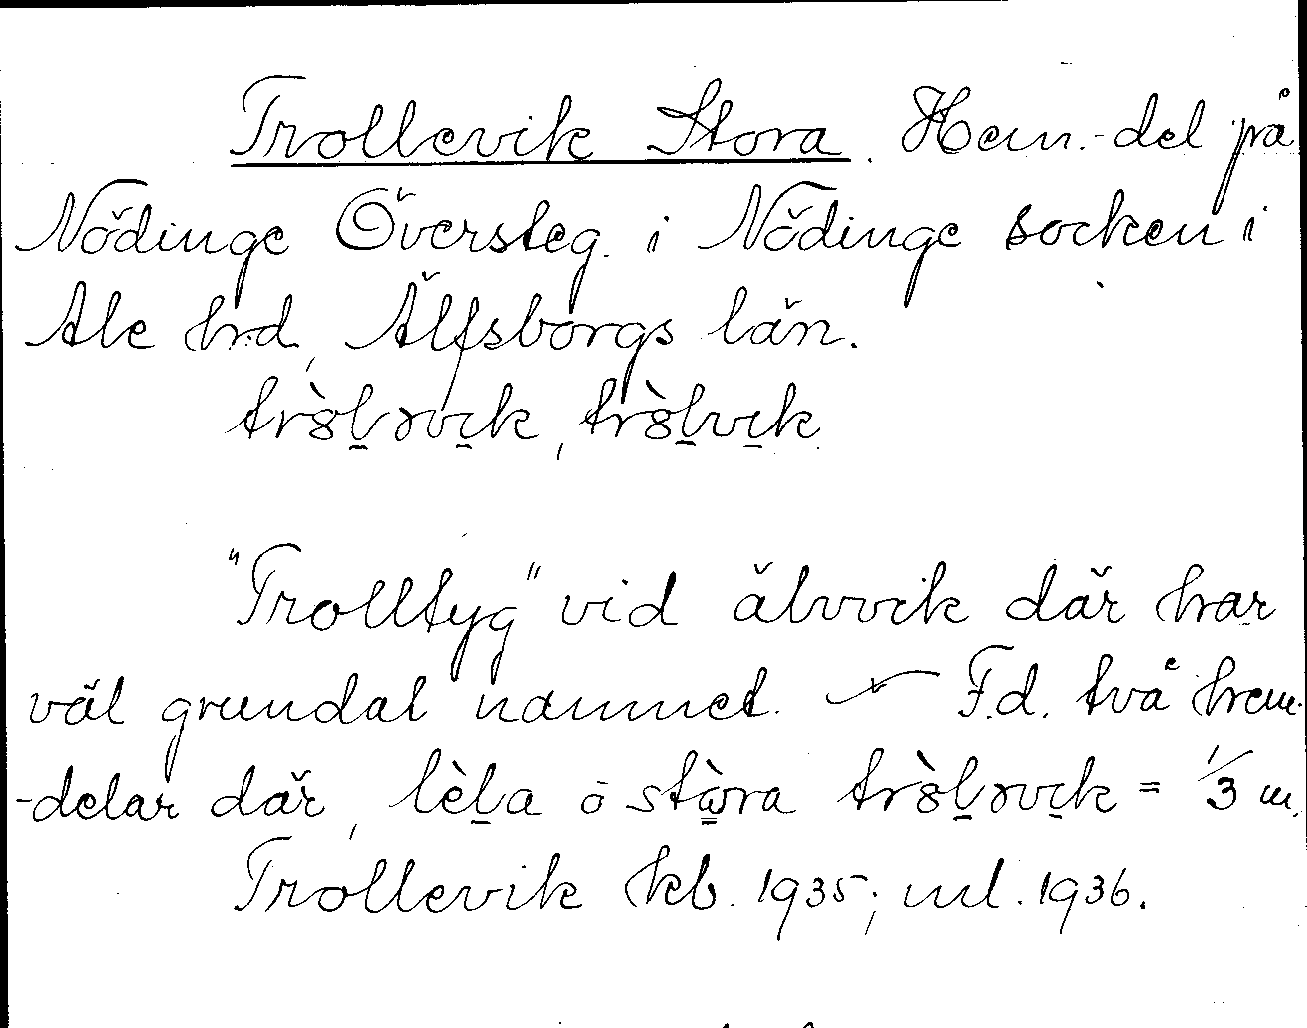 Trollevik Stora. Hem.-del på
Nödinge Översteg. i Nödinge socken i
Ale hrd, Älfsborgs län.
tròl̠əvi̠k, tròl̠vi̠k.
"Trolltyg" vid älvvik där har
väl grundat namnet. — F.d. två hem-
-delar där, lèl̠a o stòra tròl̠əvi̠k = 1/3 m.
Trollevik kb. 1935; ml. 1936.